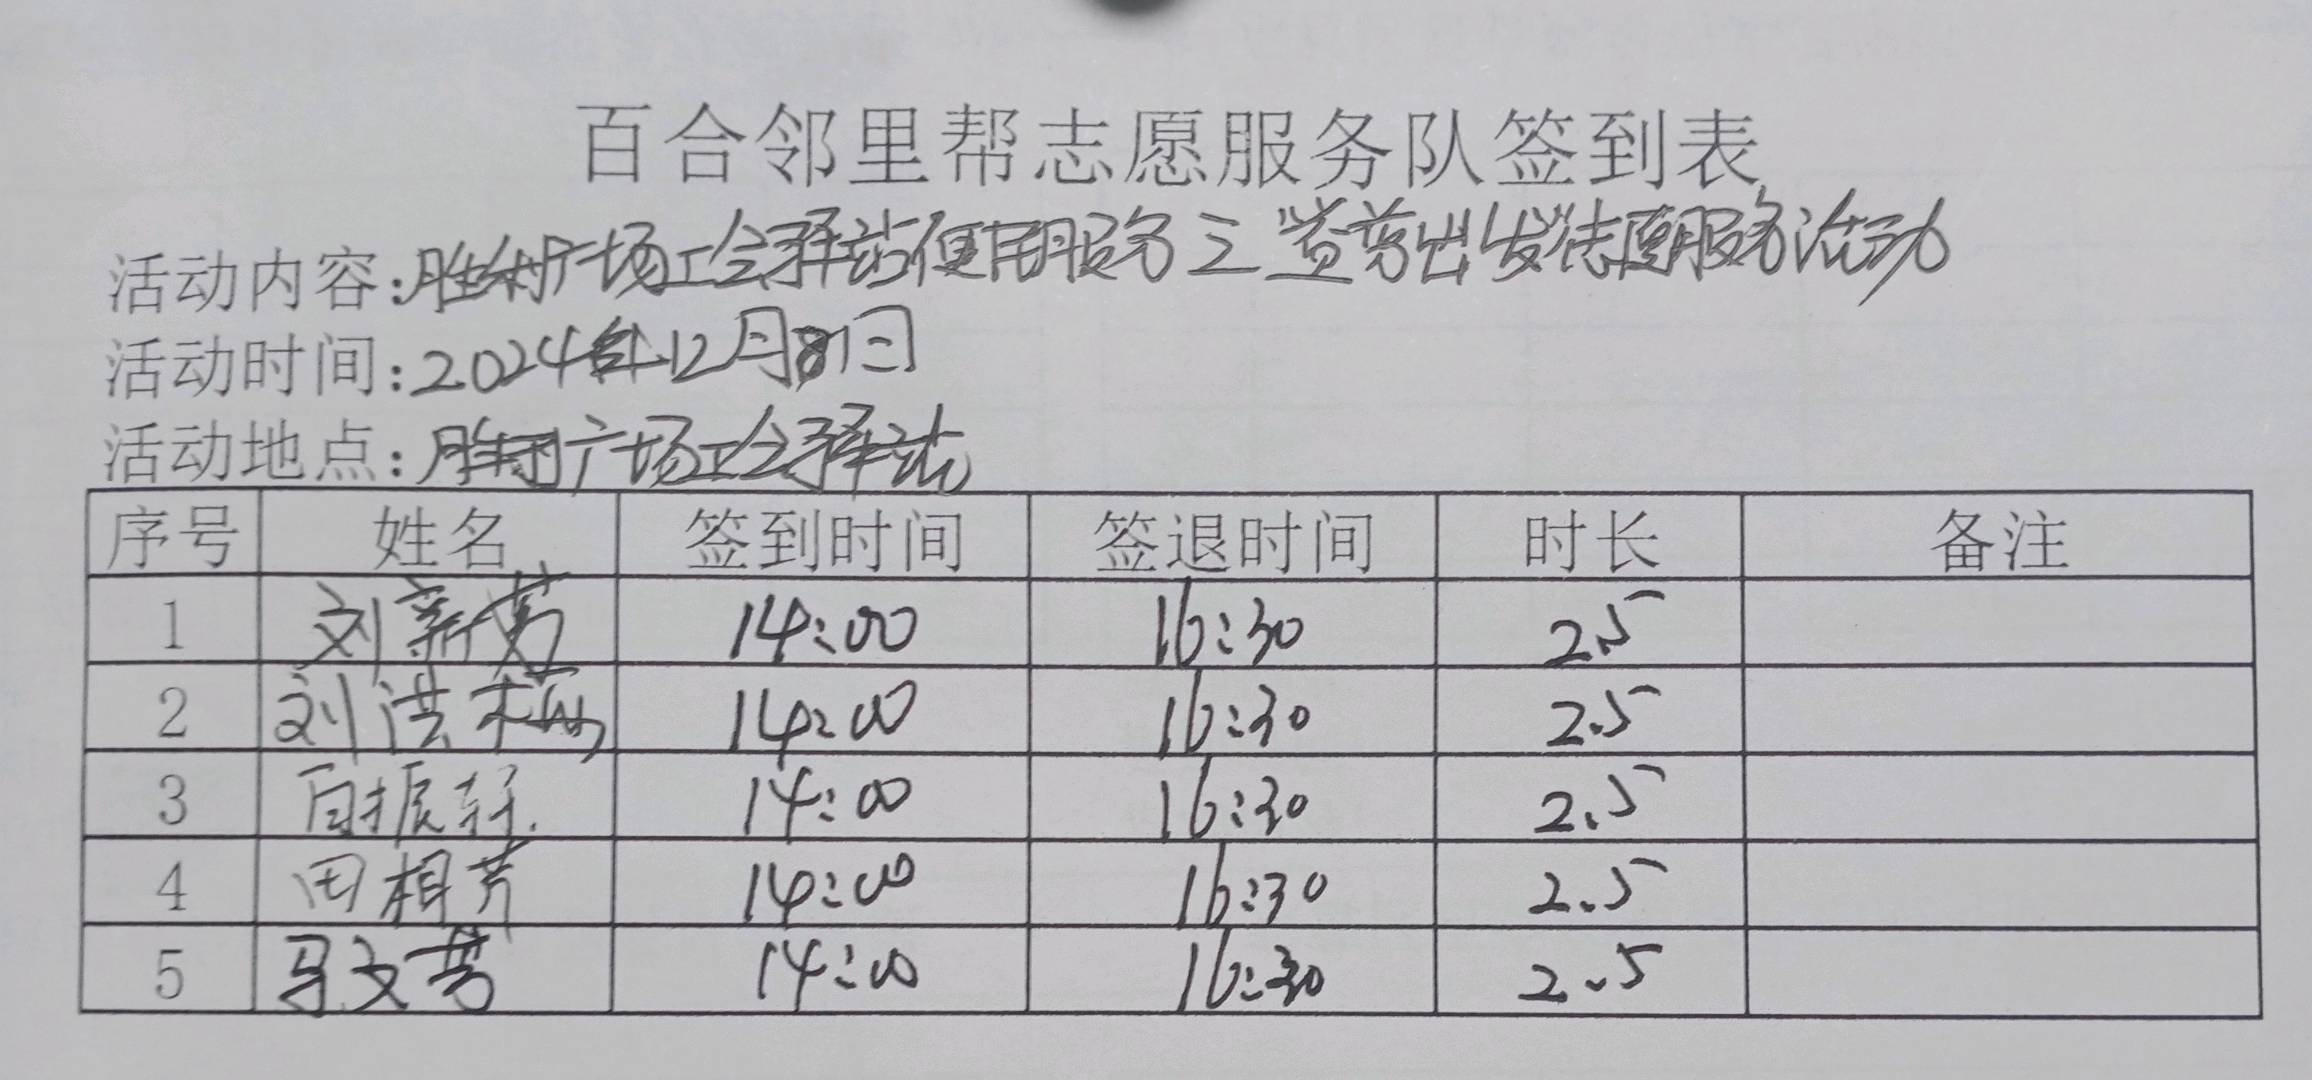 百合邻里帮志愿服务队签到表
活动内容:胜利广场工会驿站便民服务 益剪出发志愿服务活动
活动时间:2024年12月31日
活动地点:胜利广场工会驿站
序号 姓名 签到时间 签退时间 时长 备注
1 刘新芳 14:00 16:30 2.5
2 刘洪梅 14:00 16:30 2.5
3 14:00 16:30 2.5
4 田相芹 14:00 16:30 2.5
5 马文芳 14:00 16:30 2.5